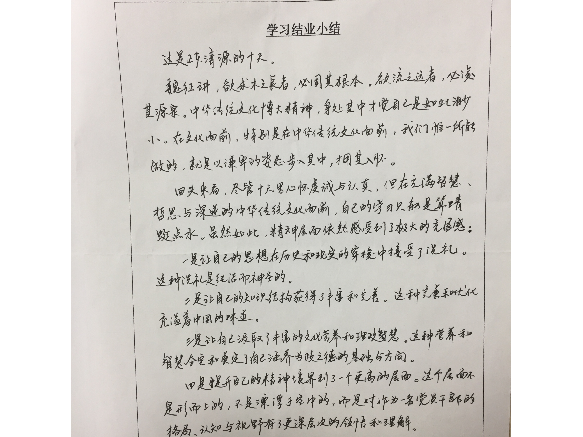 学习结业小结
这是正本清源的十天。
魏征讲，欲求木之长者，必固其根本，欲流之远者，必浚
其源泉。中华传统文化博大精神，身处其中才觉自己是如此渺
小。在文化面前，特别是在中华传统文化面前，我们唯一所能
做的，就是以谦卑的姿态步入其中，
回头来看，尽管十天里心怀虔诚与认真，但在充满智慧、
哲思与深邃的中华传统文化面前，自己的学习只能是算蜻
蜓点水。虽然如此，精神层面依然感受到了极大的充盈感：
一是让自己的思想在历史和现实的穿梭中接受了洗礼。
这种洗礼是鲜活而神圣的。
二是让自己的知识结构获得了丰富和完善。这种完善和优化
充溢着中国的味道。
三是让自己汲取了丰富的文化营养和理政智慧。这种营养和
智慧会更加奠定了自己涵养为政之德的基础与方向。
四是提升自己的精神境界到了一个更高的层面。这个层面不
是形而上的，不是漂浮于空中的，而是对作为一名党员干部的
格局、认知与视野有了更深层次的领悟和理解。